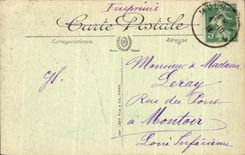 Imprimé
Carte Postale
Correspondance
Adresse
Monsieur & Madame
Leray
Rue du Pont
à Montoir
Loire Inférieure